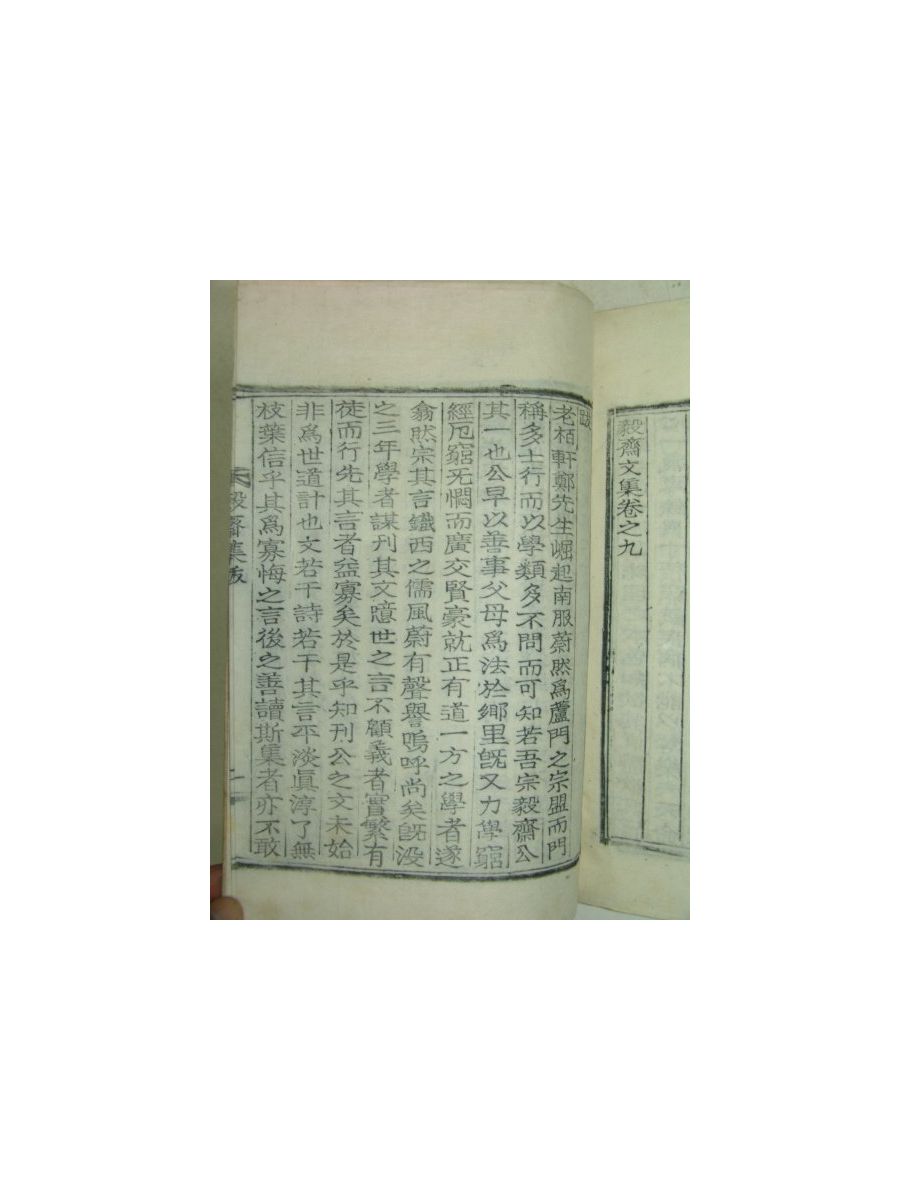 毅齋文集卷之九
跋
老栢軒鄭先生崛起南服蔚然爲蘆門之宗盟而門
稱多士行而以學類多不問而可知若吾宗毅齋公
其一也公早以善事父母爲法於鄕里旣又力學窮
經厄窮无憫而廣交賢豪就正有道一方之學者遂
翕然宗其言鐵西之儒風蔚有聲譽嗚呼尚矣旣沒
之三年學者謀刊其文噫世之言不顧義者實繁有
徒而行先其言者益寡矣於是乎知刊公之文未始
非爲世道計也文若干詩若干其言平淡眞淳了無
枝葉信乎其爲寡悔之言後之善讀斯集者亦不敢
毅齋集跋 一